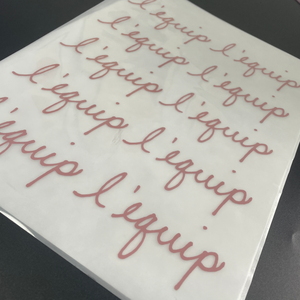 l'équip l'équip
l'équip l'équip
l'équip l'équip
l'équip l'équip
l'équip l'équip